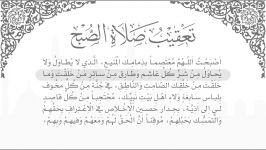 تَعْقِيبُ صَلَاةِ الصُّبْحِ
اَصْبَحْتُ اَللّٰهُمَّ مُعْتَصِماً بِذِمَامِكَ الْمَنِيعِ، الَّذِي لَا يُطَاوَلُ وَلَا
يُحَاوَلُ مِنْ شَرِّ كُلِّ غَاشِمٍ وَطَارِقٍ مِنْ سَائِرِ مَنْ خَلَقْتَ وَمَا
خَلَقْتَ مِنْ خَلْقِكَ الصَّامِتِ وَالنَّاطِقِ، فِي جُنَّةٍ مِنْ كُلِّ مَخُوفٍ
بِلِبَاسٍ سَابِغَةٍ وَلَاءِ اَهْلِ بَيْتِ نَبِيِّكَ، مُحْتَجِباً مِنْ كُلِّ قَاصِدٍ
لِي اِلَى اَذِيَّةٍ، بِجِدَارٍ حَصِينِ الْاِخْلَاصِ فِي الْاِعْتِرَافِ بِحَقِّهِمْ
وَالتَّمَسُّكِ بِحَبْلِهِمْ، مُوقِناً اَنَّ الْحَقَّ لَهُمْ وَمَعَهُمْ وَفِيهِمْ وَبِهِمْ،